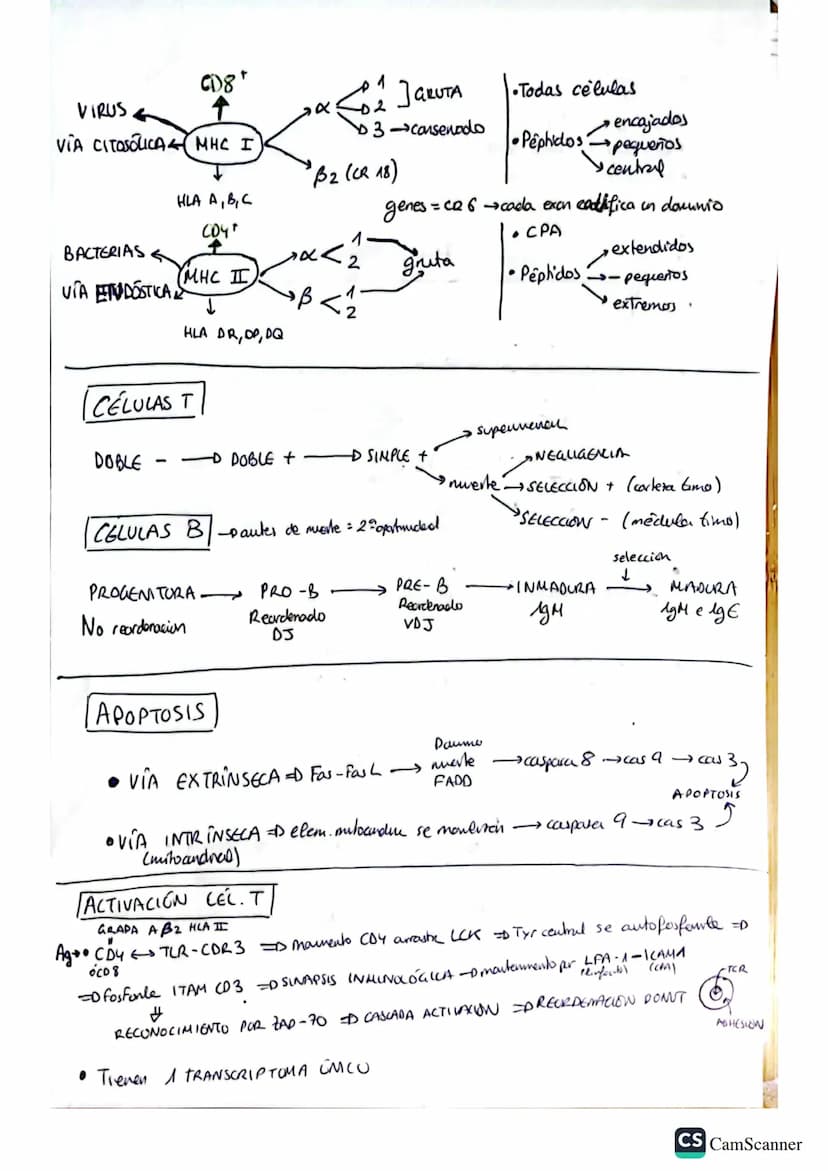 CD8+
VIRUS
VÍA CITOSÓLICA
MHC I
HLA A, B, C
α
1
2
] GRUTA
3 → conservado
β2 (CR 18)
• Todas células
• Péptidos → encajados
→ pequeños
→ central
genes = CR 6 → cada exon codifica un dominio
CD4+
BACTERIAS
VÍA ENDÓSTICA
MHC II
HLA DR, DP, DQ
α < 1
2
β < 1
2
gruta
• CPA
• Péptidos → extendidos
→ - pequeños
→ extremos
CÉLULAS T
DOBLE - → DOBLE + → SIMPLE +
→ supervivencia
→ muerte
→ NEGLIGENCIA
→ SELECCIÓN + (corteza timo)
→ SELECCIÓN - (médula timo)
CÉLULAS B → antes de muerte = 2ª oportunidad
selección
↓
PROGENITORA → PRO-B → PRE-B → INMADURA → MADURA
No reordenacion
Reordenado
DJ
Reordenado
VDJ
IgM
IgM e IgE
APOPTOSIS
• VÍA EXTRÍNSECA ⇒ Fas-FasL → muerte FADD → caspasa 8 → cas 9 → cas 3
APOPTOSIS
• VÍA INTRÍNSECA ⇒ elem. mitocondria se → caspasa 9 → cas 3
(mitocondrial)
ACTIVACIÓN CÉL. T
A β2 HLA II
Ag CD4 ↔ TLR-CDR3 ⇒ CD4 arrastra LCK ⇒ Tyr central se autofosforila ⇒
ó CD8
⇒ fosforila ITAM CD3 ⇒ SINAPSIS INMUNOLÓGICA → mantenimiento por LFA-1-ICAM1
(CPA)
⇓
RECONOCIMIENTO POR ZAP-70 ⇒ CASCADA ACTIVACIÓN ⇒ REORDENACIÓN DONUT
TCR
ADHESIÓN
• Tienen 1 TRANSCRIPTOMA ÚNICO
CS CamScanner